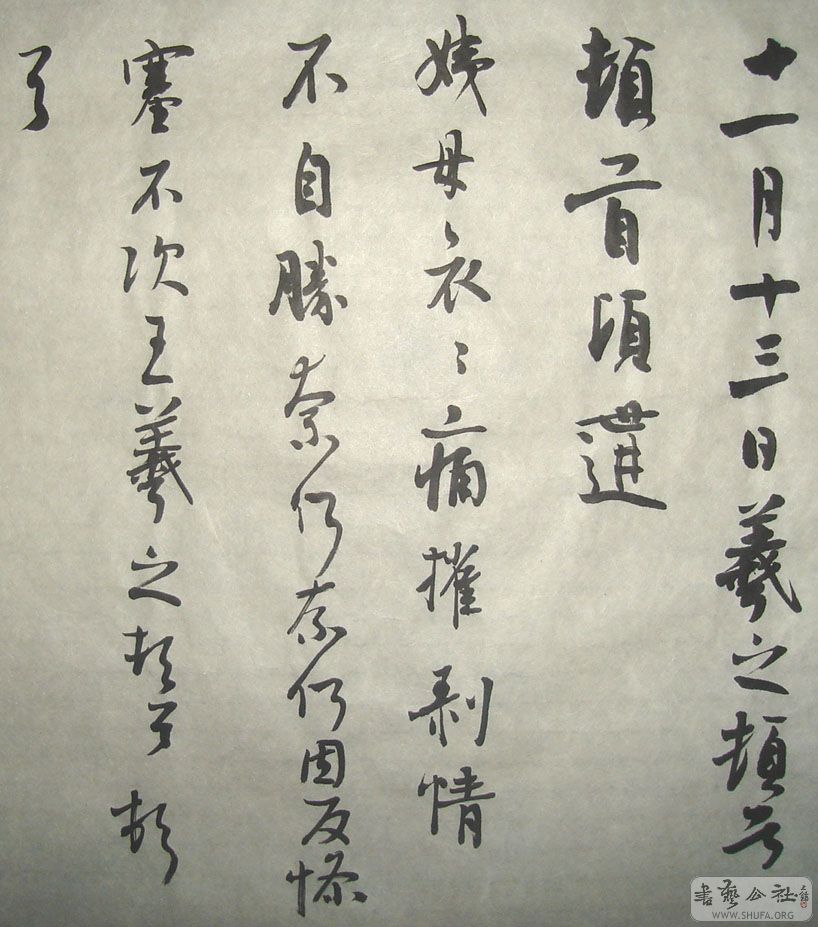 十一月十三日羲之頓首
頓首頃遘
姨母哀〻痛摧剥情
不自勝奈何奈何因反慘
塞不次王羲之頓首頓
首
書藝公社
WWW.SHUFA.ORG